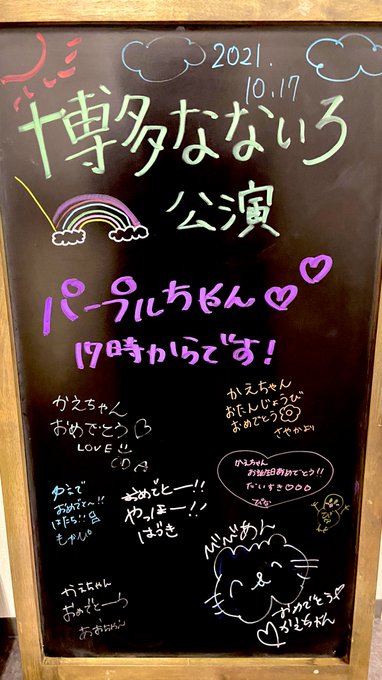 2021.
10.17
博多なないろ
公演
パープルちゃん♡♡
17時からです!
かえちゃん
おめでとう♡
LOVE
かえちゃん
おたんじょうび
おめでとう
さやかより
かえちゃん
お誕生日おめでとう!!
だいすき♡♡♡
おめでとー!!
やっほー!!
はづき
おめでとー!!
はたち!!
かえちゃん
おめでとーう
びびあん
おめでとう♡
♡かえちゃん